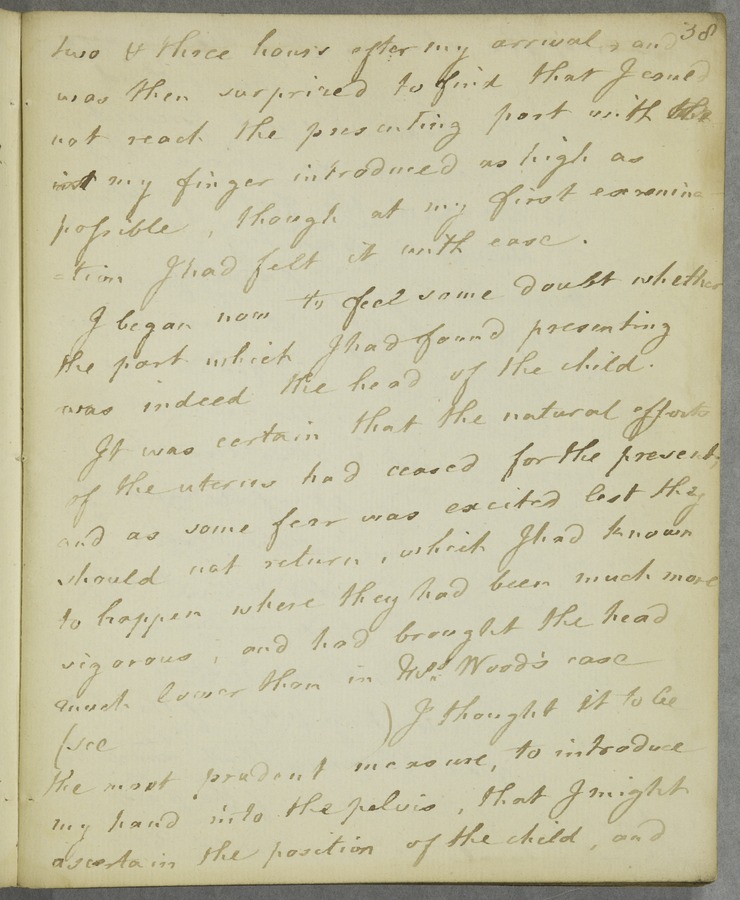 38
two & three hours after my arrival, and
was then surprized to find that I coued
not reach the presenting part with the
my finger introduced as high as
possible, though at my first examina
=tion I had felt it with ease.
I began now to feel some doubt whether
the part which I had found presenting
was indeed the head of the child.
It was certain that the natural efforts
of the uterus had ceased for the present,
and as some fear was excited lest they
should not return, which I had known
to happen where they had been much more
vigorous, and had brought the head
much lower than in Mrs. Wood's case
(see ) I thought it to be
the most prudent measure, to introduce
my hand into the pelvis, that I might
ascertain the position of the child, and